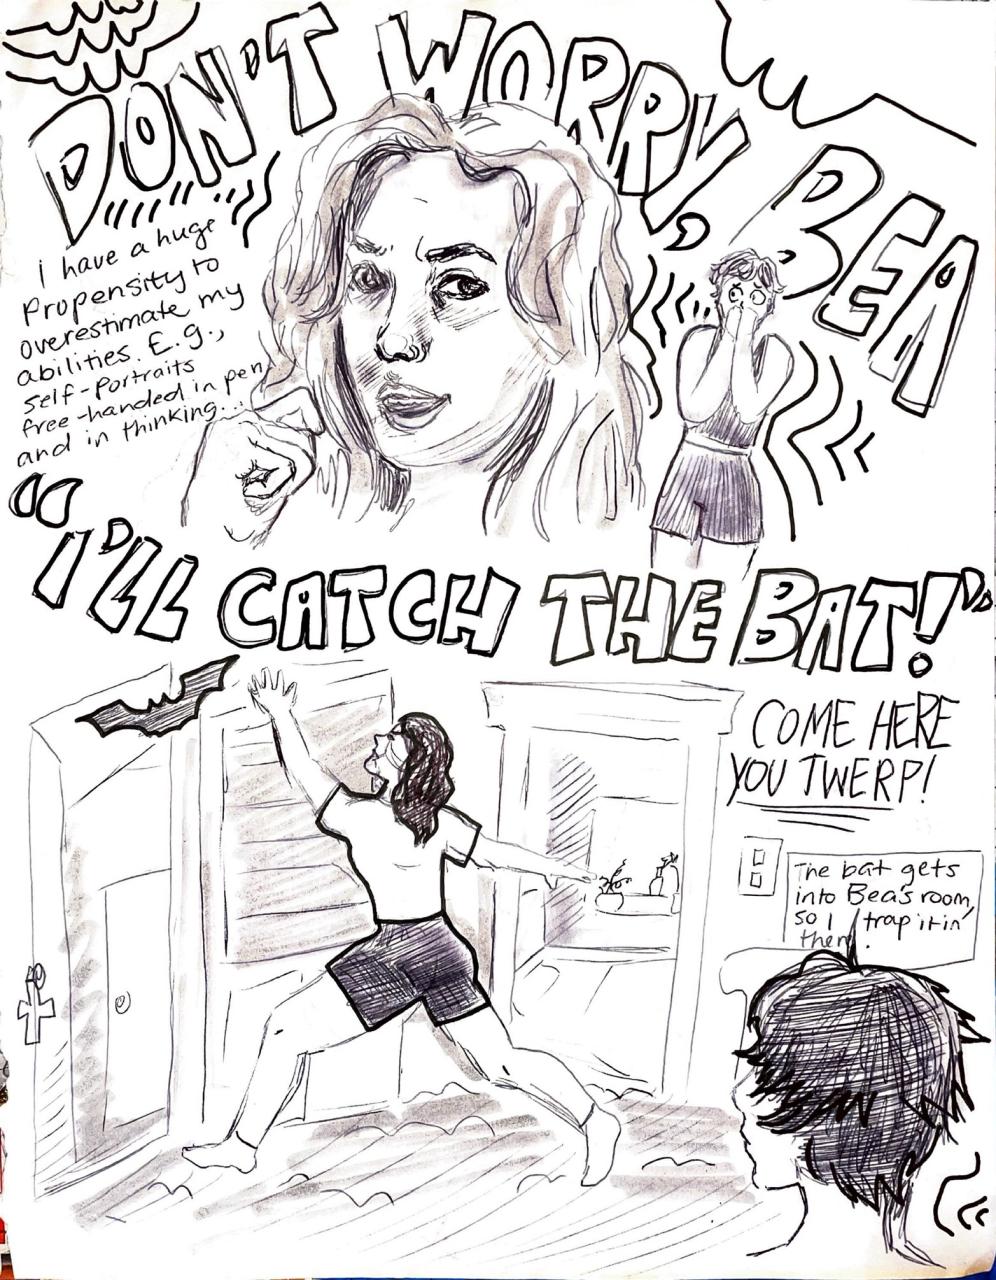 DON'T WORRY, BEA
i have a huge
propensity to
overestimate my
abilities. E.g.,
self-portraits
free-handed in pen
and in thinking...
"I'LL CATCH THE BAT!"
COME HERE
YOU TWERP!
The bat gets
into Bea's room,
so I trap it in
there.